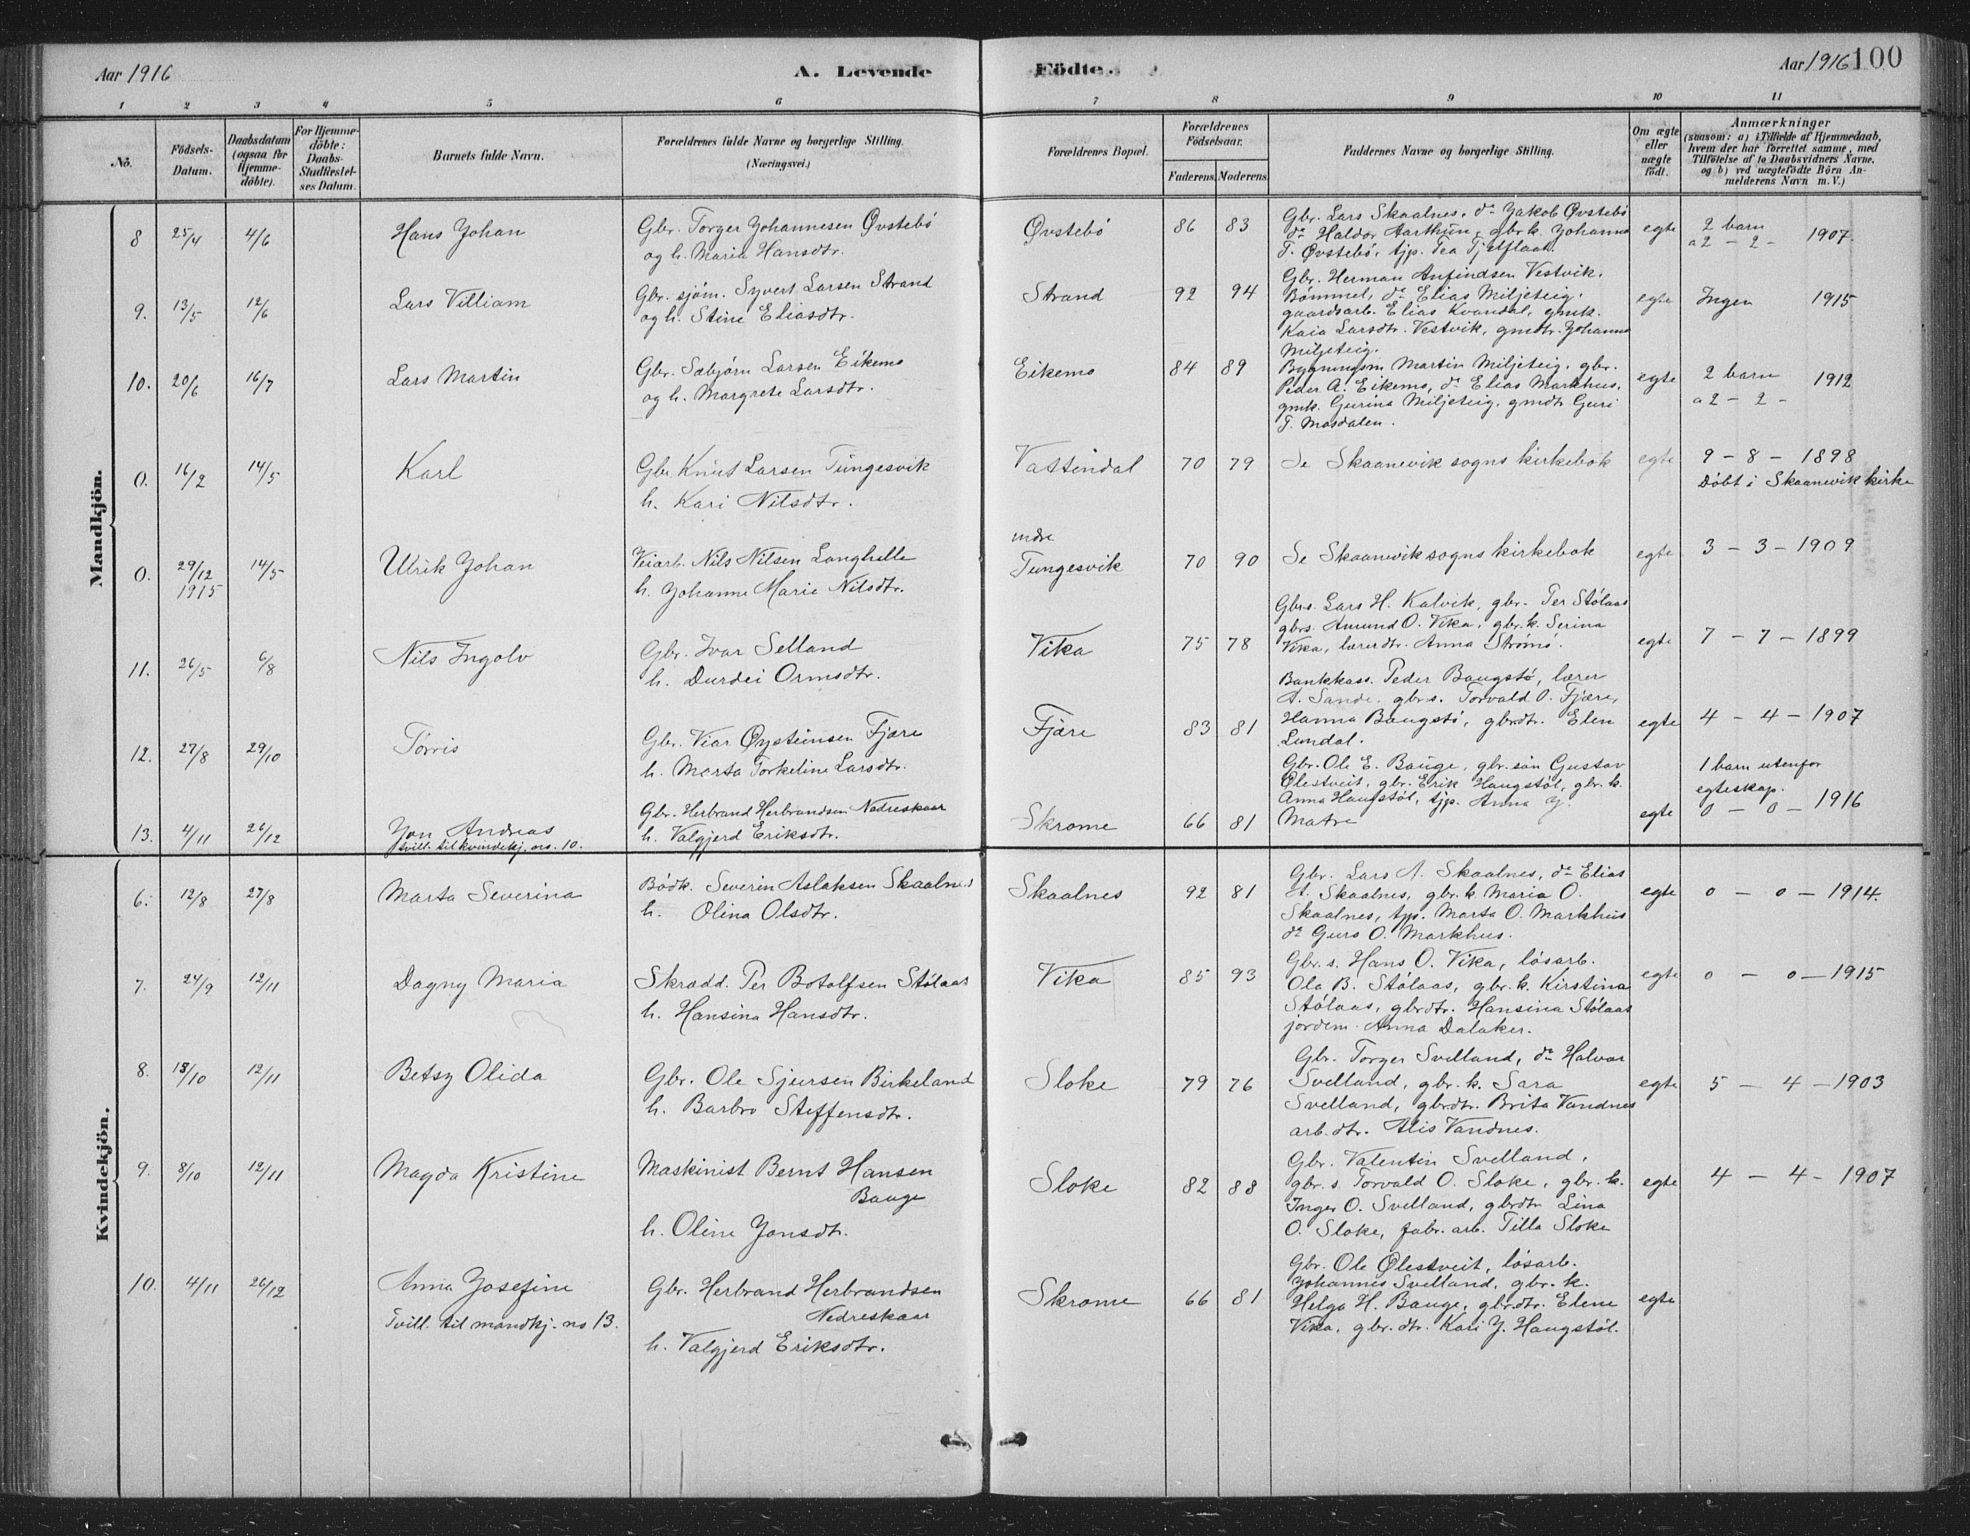 Aar 1916
A. Levende
Födte.
Aar 1916
100
1 2 3 4 5 6 7 8 9 10 11
No.
Födsels-
Datum.
Daabsdatum
(ogsaa for
Hjemme-
döbte).
For Hjemme-
döbte:
Daabs-
Stadfæstel-
ses Datum.
Barnets fulde Navn.
Forældrenes fulde Navne og borgerlige Stilling.
(Næringsvei.)
Forældrenes Bopæl.
Forældrenes
Födselsaar.
Faderens. Moderens.
Faddernes Navne og borgerlige Stilling.
Om ægte
eller
uægte
födt.
Anmærkninger
(saasom: a) i Tilfælde af Hjemmedaab,
hvem der har forrettet samme, med
Tilföielse af to Daabsvidners Navne,
og b) ved uægtefödte Börn An-
melderens Navn m. V.)
Mandkjön.
8 25/4 4/6 Hans Johan
Gbr. Torger Johannesen Øvstebö
og h. Maria Hansdtr.
Øvstebö 86 83
Gbr. Lars Skaalnes, do Jakob Øvstebö
do Haldor Aarthun, gbr.k. Johanna
T. Øvstebö, tjp. Tea Fjelflaat.
egte
2 barn
a 2 - 2 - 1907.
9. 13/5 12/6 Lars Villiam
Gbr. sjöm. Syvert Larsen Strand
og h. Stine Eliasdtr.
Strand 92 94
Gbr. Herman Anfindsen Vestvik,
Bömmel, do Elias Miljeteig,
gaardsarb. Elias Kvandal, gmk.
Kaia Larsdtr. Vestvik, gmdtr. Johanna
Miljeteig.
egte
Ingen 1915
10. 20/6 16/7 Lars Martin
Gbr. Sæbjörn Larsen Eikemo
og h. Margrete Larsdtr.
Eikemo 84 89
Bygningsm. Martin Miljeteig, gbr.
Peder A. Eikemo, do Elias Markhus,
gmk. Gurina Miljeteig, gmdtr Guri
T. Mosdalen.
egte
2 barn 1912
a 2 - 2 -
0. 16/2 14/5 Karl
Gbr. Knut Larsen Tungesvik
h. Kari Nilsdtr.
Vattendal 70 79
Se Skaanevik sogns kirkebok
egte
9 - 8 - 1898
Döbt i Skaanevik kirke
0. 29/12
1915
14/5 Ulrik Johan
Veiarb. Nils Nilsen Langhelle
h. Johanne Marie Nilsdtr.
indre
Tungesvik 70 90
Se Skaanevik sogns kirkebok
egte
3 - 3 - 1909
11. 26/5 6/8 Nils Ingolv
Gbr. Ivar Selland
h. Durdei Ormsdtr.
Vika 75 78
Gbrs. Lars H. Kalvik, gbr. Per Stölaas
gbrs. Amund O. Vika, gbr.k. Serina
Vika, lærerdtr. Anna Strömö.
egte
7 - 7 - 1899
12. 27/8 29/10 Törris
Gbr. Vier Øysteinsen Fjære
h. Marta Torkeline Larsdtr.
Fjære 83 81
Bankkass. Peder Baugstö, lærer
A. Sande, gbr.s. Torvald O. Fjære,
Hanna Baugstö, gbrdtr. Elen
Lundal.
egte
4 - 4 - 1907
13. 4/11 26/12 Jon Andreas
tvill. til kvindekj. no. 10.
Gbr. Herbrand Herbrandsen Nedreskaar
h. Valgjerd Eriksdtr.
Skrome 66 81
Gbr. Ole E. Bauge, gbr. sön Gustav
Ølestveit, gbr. Erik Haugstöl, gbr.k.
Anna Haugstöl, tjp. Anna
Matre
egte
1 barn utenfor
egteskap.
0 - 0 - 1916
Kvindekjön.
6. 12/8 27/8 Marta Severina
Bödk. Severin Aslaksen Skaalnes
h. Olina Olsdtr.
Skaalnes 92 81
Gbr. Lars A. Skaalnes, do Elias
A. Skaalnes, gbr.k. Maria O.
Skaalnes, tjp. Marta O. Markhus
do Guro O. Markhus.
egte
0 - 0 - 1914.
7. 24/9 12/11 Dagny Maria
Skradd. Per Botolfsen Stölaas
h. Hansina Hansdtr.
Vika 85 93
Gbr.s. Hans O. Vika, lösarb.
Ola B. Stölaas, gbr.k. Kirstina
Stölaas, gbrdtr. Hansina Stölaas
jordm. Anna Dalaker.
egte
0 - 0 - 1915
8. 13/10 12/11 Betsy Olida
Gbr. Ole Sjursen Birkeland
h. Barbro Steffensdtr.
Sloke 79 76
Gbr. Torger Svelland, do Halvar
Svelland, gbr.k. Sara
Svelland, gbrdtr. Brita Vandnes
arb.dtr. Alis Vandnes.
egte
5 - 4 - 1903
9. 8/10 12/11 Magda Kristine
Maskinist Bernt Hansen
Bauge
h. Oline Jonsdtr.
Sloke 82 88
Gbr. Valentin Svelland,
gbr.s. Torvald O. Sloke, gbr.k.
Inger O. Svelland, gbrdtr Lina
O. Sloke, fabr. arb. Tilla Sloke
egte
4 - 4 - 1907
10. 4/11 26/12 Anna Josefine
Tvill. til mandkj. no 13.
Gbr. Herbrand Herbrandsen
Nedreskaar
h. Valgjerd Eriksdtr.
Skrome 66 81
Gbr. Ole Ølestveit, lösarb.
Johannes Svelland, gbr.k.
Helga H. Bauge, gbrdtr. Elene
Vika, gbr.dtr. Kari J. Haugstöl.
egte